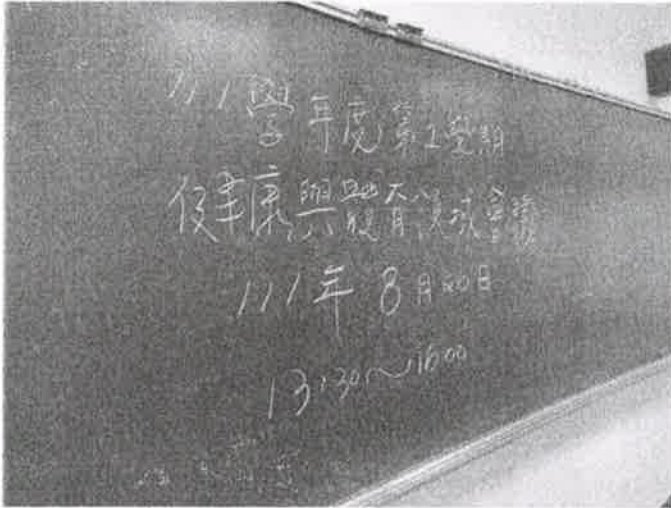 111學年度第1學期
健康與體育領域會議
111年8月30日
13:30~16:00